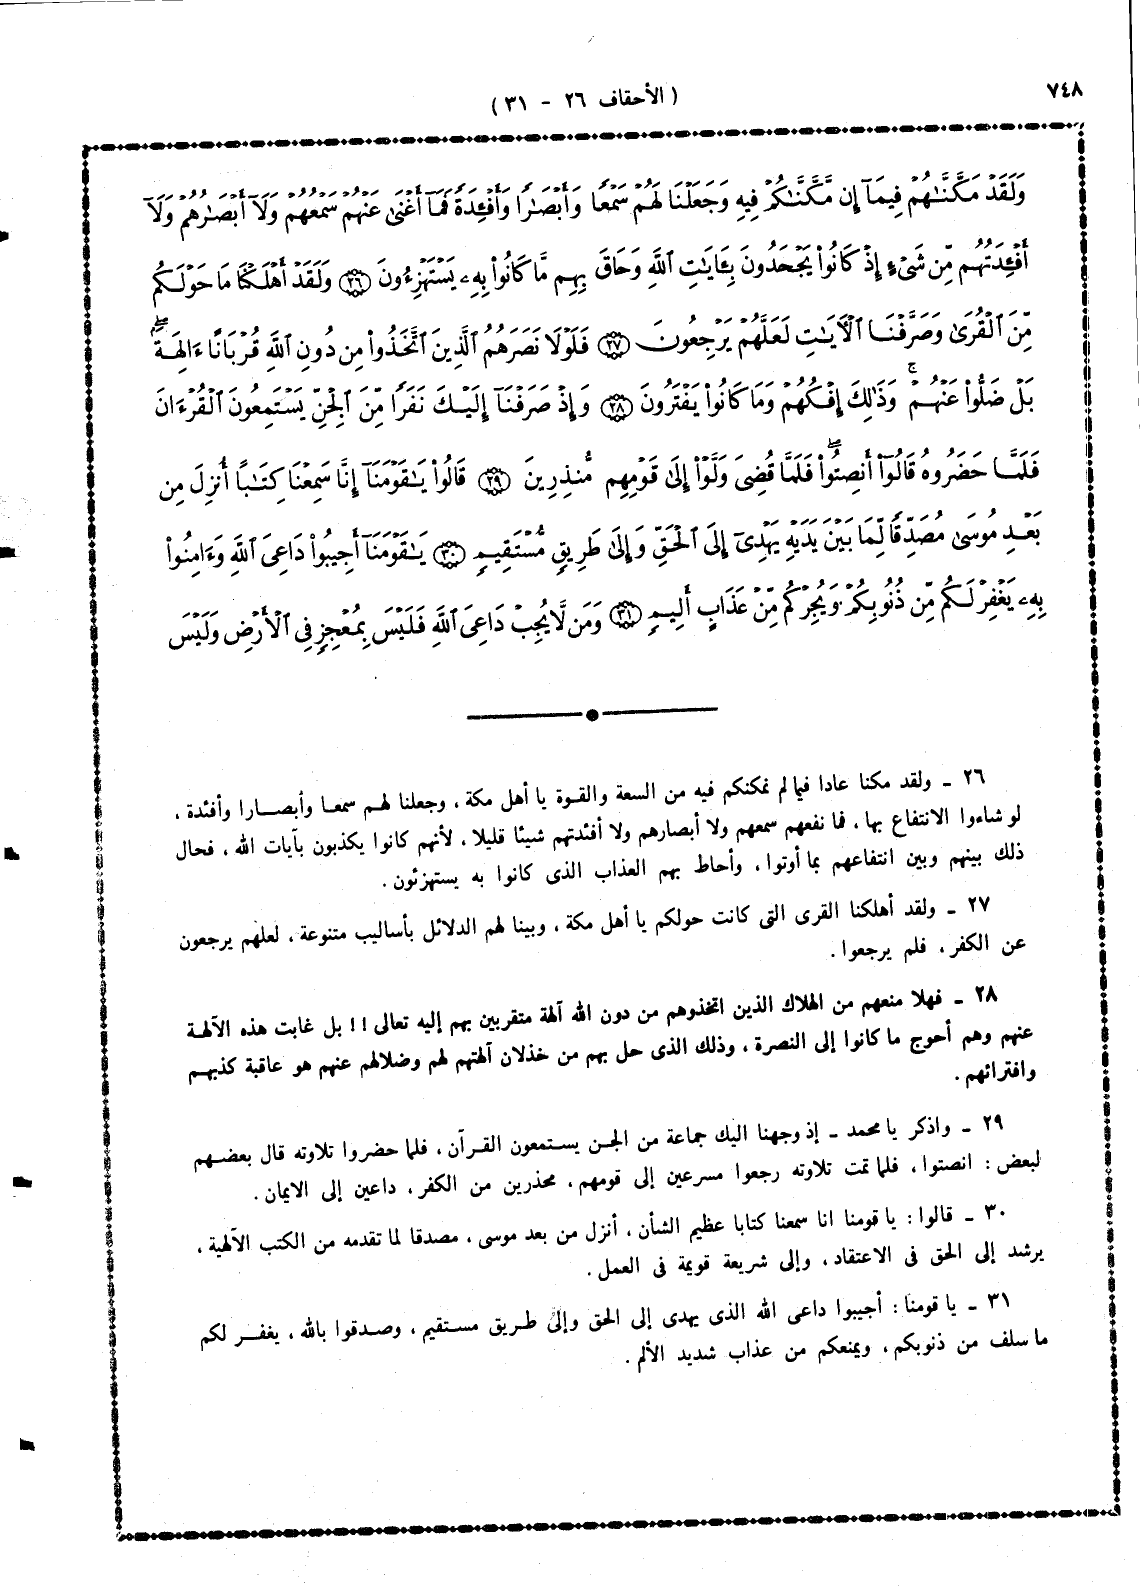 ٧٤٨
( الأحقاف ٢٦ - ٣١ )
وَلَقَدْ مَكَّنَّٰهُمْ فِيمَآ إِن مَّكَّنَّٰكُمْ فِيهِ وَجَعَلْنَا لَهُمْ سَمْعًا وَأَبْصَٰرًا وَأَفْـِٔدَةً فَمَآ أَغْنَىٰ عَنْهُمْ سَمْعُهُمْ وَلَآ أَبْصَٰرُهُمْ وَلَآ
أَفْـِٔدَتُهُم مِّن شَىْءٍ إِذْ كَانُوا۟ يَجْحَدُونَ بِـَٔايَٰتِ ٱللَّهِ وَحَاقَ بِهِم مَّا كَانُوا۟ بِهِۦ يَسْتَهْزِءُونَ ﴿٢٦﴾ وَلَقَدْ أَهْلَكْنَا مَا حَوْلَكُم
مِّنَ ٱلْقُرَىٰ وَصَرَّفْنَا ٱلْـَٔايَٰتِ لَعَلَّهُمْ يَرْجِعُونَ ﴿٢٧﴾ فَلَوْلَا نَصَرَهُمُ ٱلَّذِينَ ٱتَّخَذُوا۟ مِن دُونِ ٱللَّهِ قُرْبَانًا ءَالِهَةًۢ ۖ
بَلْ ضَلُّوا۟ عَنْهُمْ ۚ وَذَٰلِكَ إِفْكُهُمْ وَمَا كَانُوا۟ يَفْتَرُونَ ﴿٢٨﴾ وَإِذْ صَرَفْنَآ إِلَيْكَ نَفَرًا مِّنَ ٱلْجِنِّ يَسْتَمِعُونَ ٱلْقُرْءَانَ
فَلَمَّا حَضَرُوهُ قَالُوٓا۟ أَنصِتُوا۟ ۖ فَلَمَّا قُضِىَ وَلَّوْا۟ إِلَىٰ قَوْمِهِم مُّنذِرِينَ ﴿٢٩﴾ قَالُوا۟ يَٰقَوْمَنَآ إِنَّا سَمِعْنَا كِتَٰبًا أُنزِلَ مِن
بَعْدِ مُوسَىٰ مُصَدِّقًا لِّمَا بَيْنَ يَدَيْهِ يَهْدِىٓ إِلَى ٱلْحَقِّ وَإِلَىٰ طَرِيقٍ مُّسْتَقِيمٍ ﴿٣٠﴾ يَٰقَوْمَنَآ أَجِيبُوا۟ دَاعِىَ ٱللَّهِ وَءَامِنُوا۟
بِهِۦ يَغْفِرْ لَكُم مِّن ذُنُوبِكُمْ وَيُجِرْكُم مِّنْ عَذَابٍ أَلِيمٍ ﴿٣١﴾ وَمَن لَّا يُجِبْ دَاعِىَ ٱللَّهِ فَلَيْسَ بِمُعْجِزٍ فِى ٱلْأَرْضِ وَلَيْسَ
٢٦ ـ ولقد مكنا عادا فيما لم نمكنكم فيه من السعة والقوة يا أهل مكة ، وجعلنا لهم سمعا وأبصارا وأفئدة ،
لو شاءوا الانتفاع بها ، فما نفعهم سمعهم ولا أبصارهم ولا أفئدتهم شيئا قليلا ، لأنهم كانوا يكذبون بآيات الله ، فحال
ذلك بينهم وبين انتفاعهم بما أوتوا ، وأحاط بهم العذاب الذى كانوا به يستهزئون .
٢٧ ـ ولقد أهلكنا القرى التى كانت حولكم يا أهل مكة ، وبينا لهم الدلائل بأساليب متنوعة ، لعلهم يرجعون
عن الكفر ، فلم يرجعوا .
٢٨ ـ فهلا منعهم من الهلاك الذين اتخذوهم من دون الله آلهة متقربين بهم إليه تعالى !! بل غابت هذه الآلهة
عنهم وهم أحوج ما كانوا إلى النصرة ، وذلك الذى حل بهم من خذلان آلهتهم لهم وضلالهم عنهم هو عاقبة كذبهم
وافترائهم .
٢٩ ـ واذكر يا محمد ـ إذ وجهنا اليك جماعة من الجن يستمعون القرآن ، فلما حضروا تلاوته قال بعضهم
لبعض : انصتوا ، فلما تمت تلاوته رجعوا مسرعين إلى قومهم ، محذرين من الكفر ، داعين إلى الايمان .
٣٠ ـ قالوا : يا قومنا انا سمعنا كتابا عظيم الشأن ، أنزل من بعد موسى ، مصدقا لما تقدمه من الكتب الآلهية ،
يرشد إلى الحق فى الاعتقاد ، وإلى شريعة قويمة فى العمل .
٣١ ـ يا قومنا : أجيبوا داعى الله الذى يهدى إلى الحق وإلى طريق مستقيم ، وصدقوا بالله ، يغفر لكم
ما سلف من ذنوبكم ، ويمنعكم من عذاب شديد الألم .